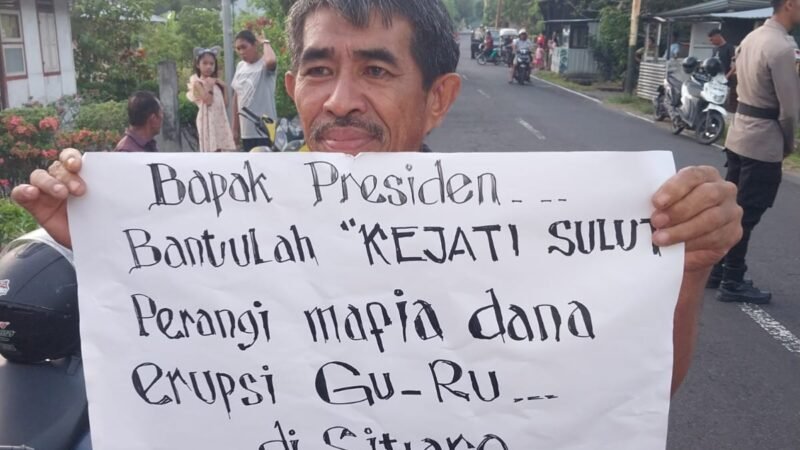 Bapak Presiden...
Bantulah "KEJATI SULUT
Perangi mafia dana
erupsi Gu-Ru...
di Sitaro